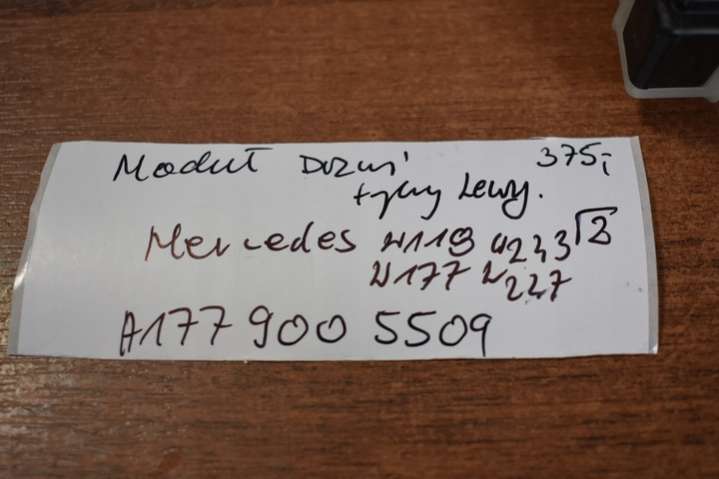 Moduł Drzwi 375,-
tylny Lewy.
Mercedes W118 W243 √2
W177 W227
A177 900 5509